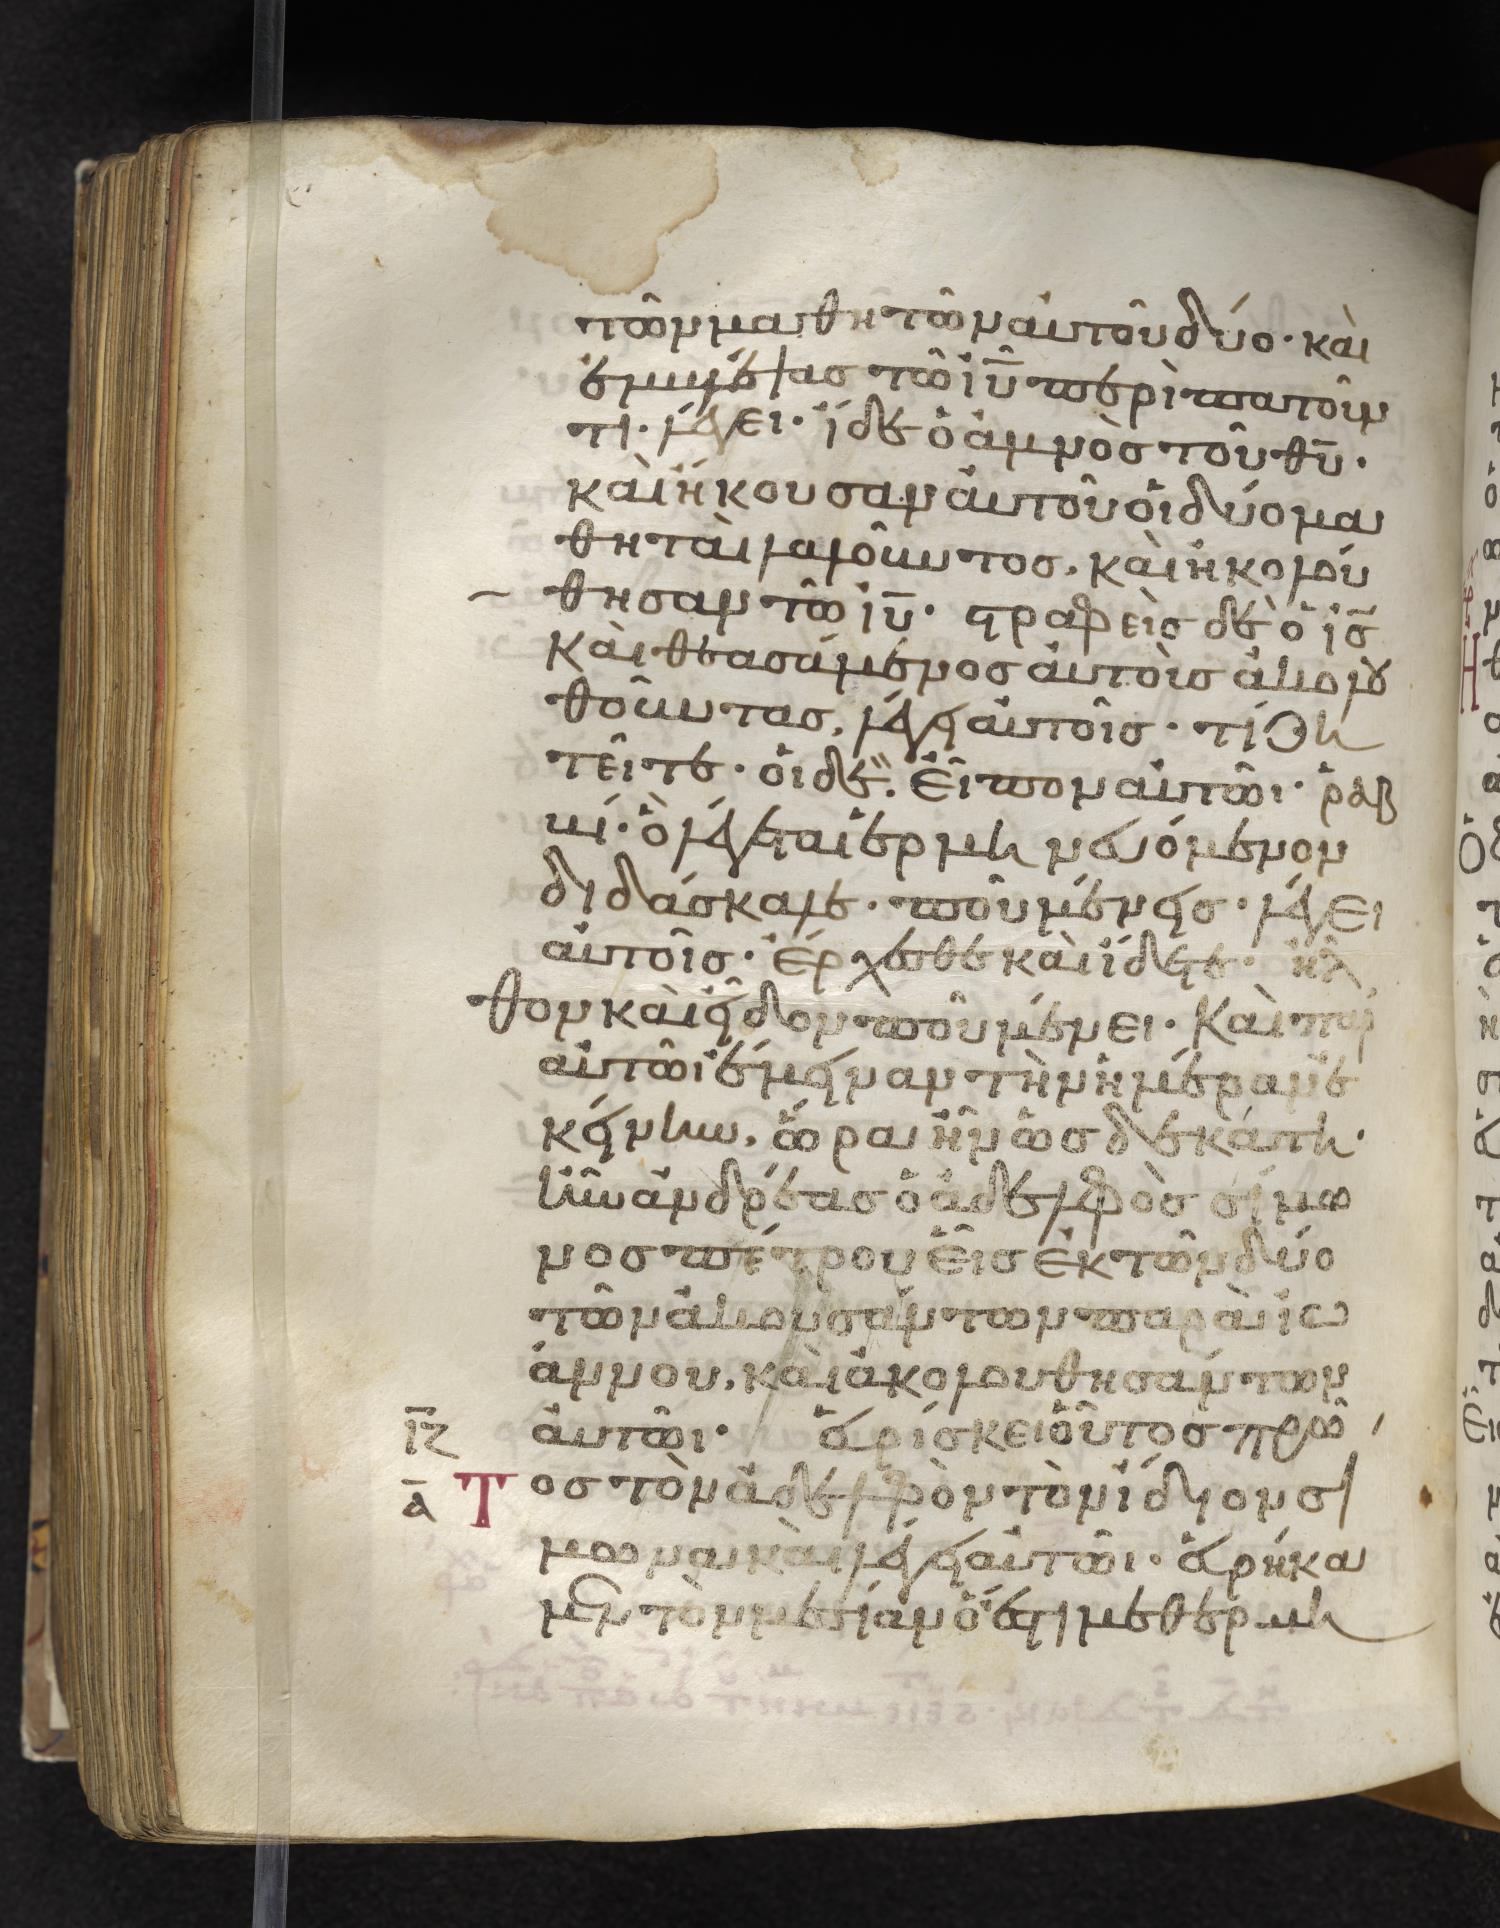 τῶν μαθητῶν αὐτοῦ δύο· καὶ
ἐμβλέψας τῶ ἰῡ περιπατοῦν
τι· λέγει· ἴδε ὁ ἀμνὸς τοῦ θῡ·
καὶ ἤκουσαν αὐτοῦ οἱ δύο μα
θηταὶ λαλοῦντος, καὶ ἠκολού
θησαν τῶ ἰῡ· στραφεὶς δὲ ὁ ἰς̄
καὶ θεασάμενος αὐτοὺς ἀκολου
θοῦντας, λέγει αὐτοῖς· τί ζη
τεῖτε· οἱ δὲ. εἶπον αὐτῶι· ῥαβ
βί· ὃ λέγεται ἑρμηνευόμενον
διδάσκαλε· ποῦ μένεις· λέγει
αὐτοῖς· ἔρχεσθε καὶ ἴδετε· ἦλ
θον καὶ εἶδον ποῦ μένει· καὶ παρ
αὐτῶι ἔμειναν τὴν ἡμέραν ἐ
κείνην, ὥρα ἦν ὡς δεκάτη·
ἦν ἀνδρέας ὁ ἀδελφὸς σίμω
νος πέτρου εἷς ἐκ τῶν δύο
τῶν ἀκουσάντων παρὰ ἰω
άννου, καὶ ἀκολουθησάντων
ιζ̄ αὐτῶι· εὑρίσκει οὗτος πρῶ
ᾱ Τος τὸν ἀδελφὸν τὸν ἴδιον σί
μωνα καὶ λέγει αὐτῶι· εὑρήκα
μεν τὸν μεσίαν ὅ ἐστι μεθερμη